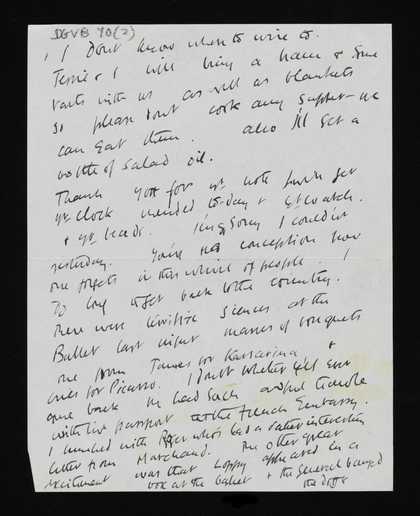 DGVB 70(2)
I Don't know when to wire to.
Jessie & I will bring a ham & some
tarts with us as well as blankets
so please don't cook any supper – we
can eat them. also I'll get a
bottle of Salad oil.
Thank you for yr. note I will get
yr clock mended to-day & yr watch.
& yr beads. I'm so sorry I couldn't
yesterday. You've no conception how
one forgets in this whirl of people. I
do long to get back to the country.
There were terrific scenes at the
Ballet last night masses of bouquets
one from James for Karsavina, &
ones for Picasso. I doubt whether will ever
come back he had such awful trouble
with his passport at the French Embassy.
I lunched with who's had a rather interesting
letter from Marchand. The other great
excitement was that Loppy appeared in a
box at the ballet & the General banged
the door